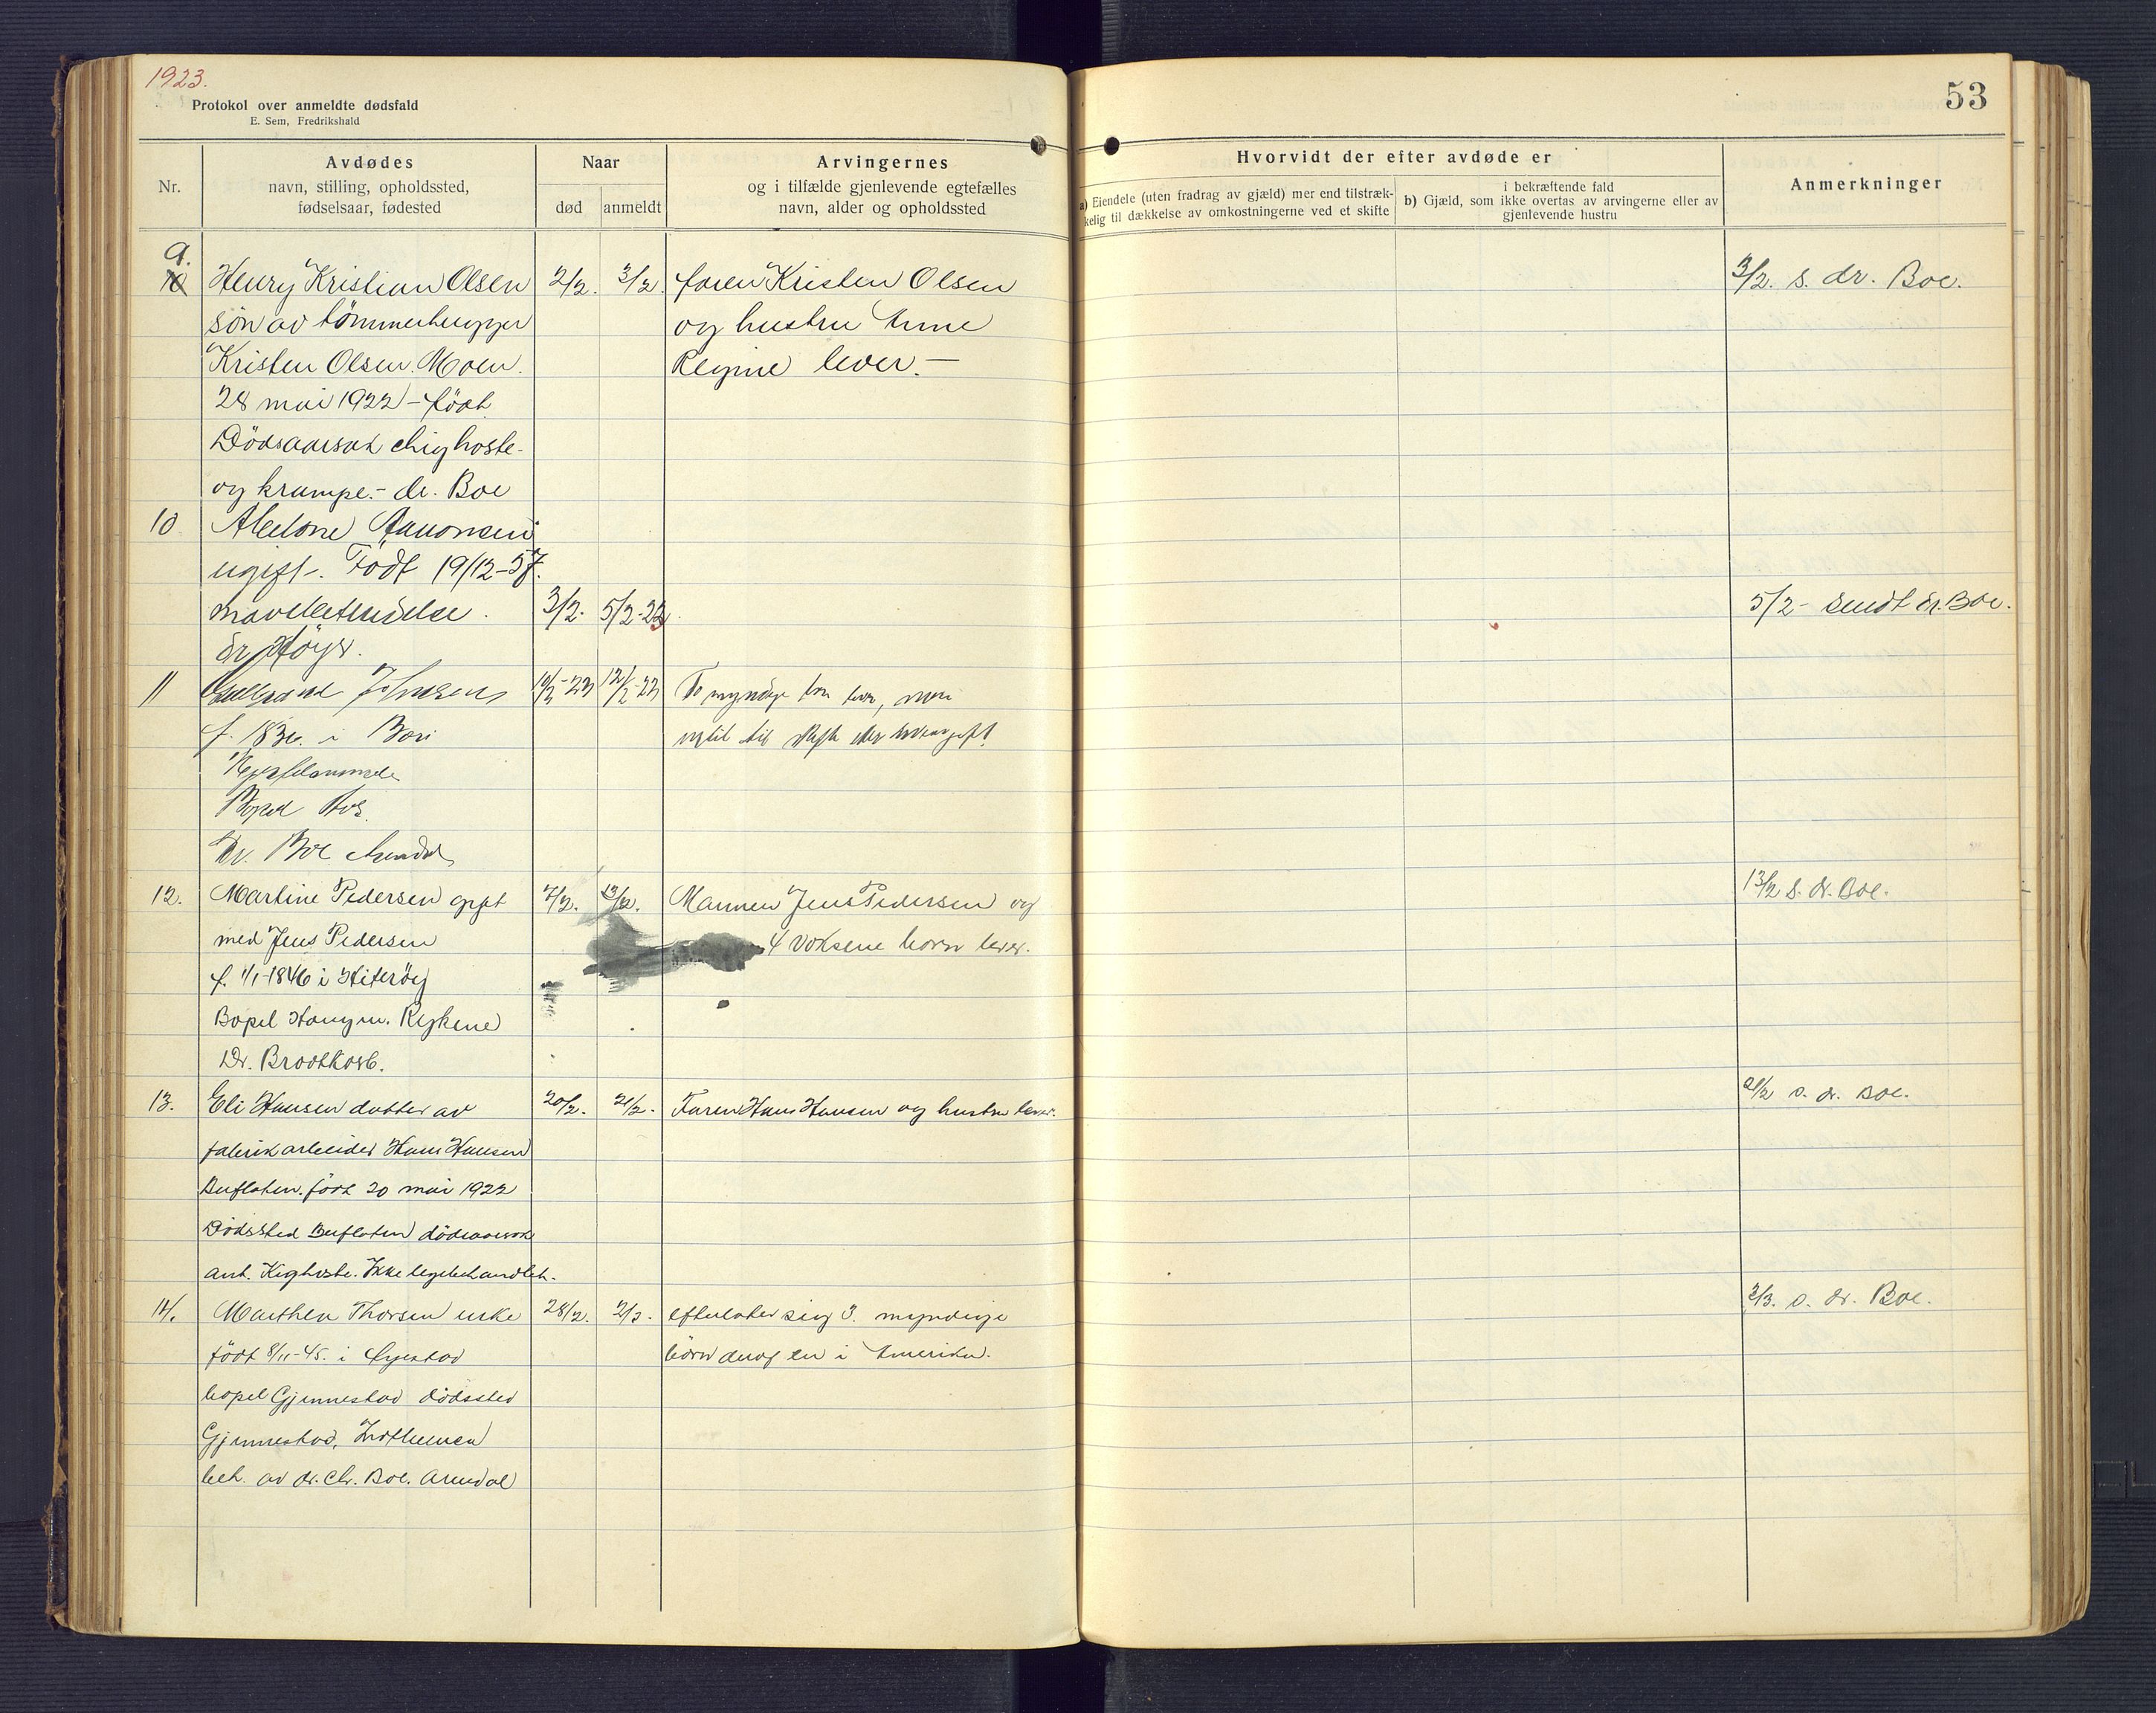 1923.
Protokol over anmeldte dødsfald
E. Sem, Fredrikshald
53
Nr.
Avdødes
navn, stilling, opholdssted,
fødselsaar, fødested
Naar
død
anmeldt
Arvingernes
og i tilfælde gjenlevende egtefælles
navn, alder og opholdssted
Hvorvidt der efter avdøde er
a) Eiendele (uten fradrag av gjæld) mer end tilstræk-
kelig til dækkelse av omkostningerne ved et skifte
i bekræftende fald
b) Gjæld, som ikke overtas av arvingerne eller av
gjenlevende hustru
Anmerkninger
9.
Henry Kristian Olsen 2/2. 3/2. faren Kristen Olsen 3/2. s. dr. Boe.
søn av tømmerhugger og hustru Anne
Kristen Olsen. Moen. Regine lever.-
28 mai 1922 - født
Dødsaarsak kighoste-
og krampe.- dr. Boe
10
ugift. Født 19/12-57.
3/2. 5/2-23 5/2- sendt dr. Boe.
11 Johnsen 10/2-23 12/2-23 To myndige lever, men
f. 183 i
Dr. Boe Arendal
12. Martine Pedersen gift 7/2. 13/2. Mannen Jens Pedersen og 13/2 s. dr. Boe.
med Jens Pedersen 4 voksene barn lever.
f. 1/1-1846 i Hiterøy
Bopel Rykene
Dr. Brodtkorb.
13. Eli Hansen datter av 20/2. 21/2. Faren Hans Hansen og hustru lever. 21/2 s. dr. Boe.
fabrikarbeider Hans Hansen
Buflaten. født 20 mai 1922
Dødssted Buflaten dødsaarsak
ant. Kighoste. Ikke legebehandlet.
14. Marthea Thorsen enke 28/2. 2/3. efterlater sig 3 myndige 2/3. s. dr. Boe.
født 8/11-45. i børn derav en i Amerika.
bopel Gjennestad dødssted
Gjennestad,
beh. av dr. Chr. Boe. Arendal